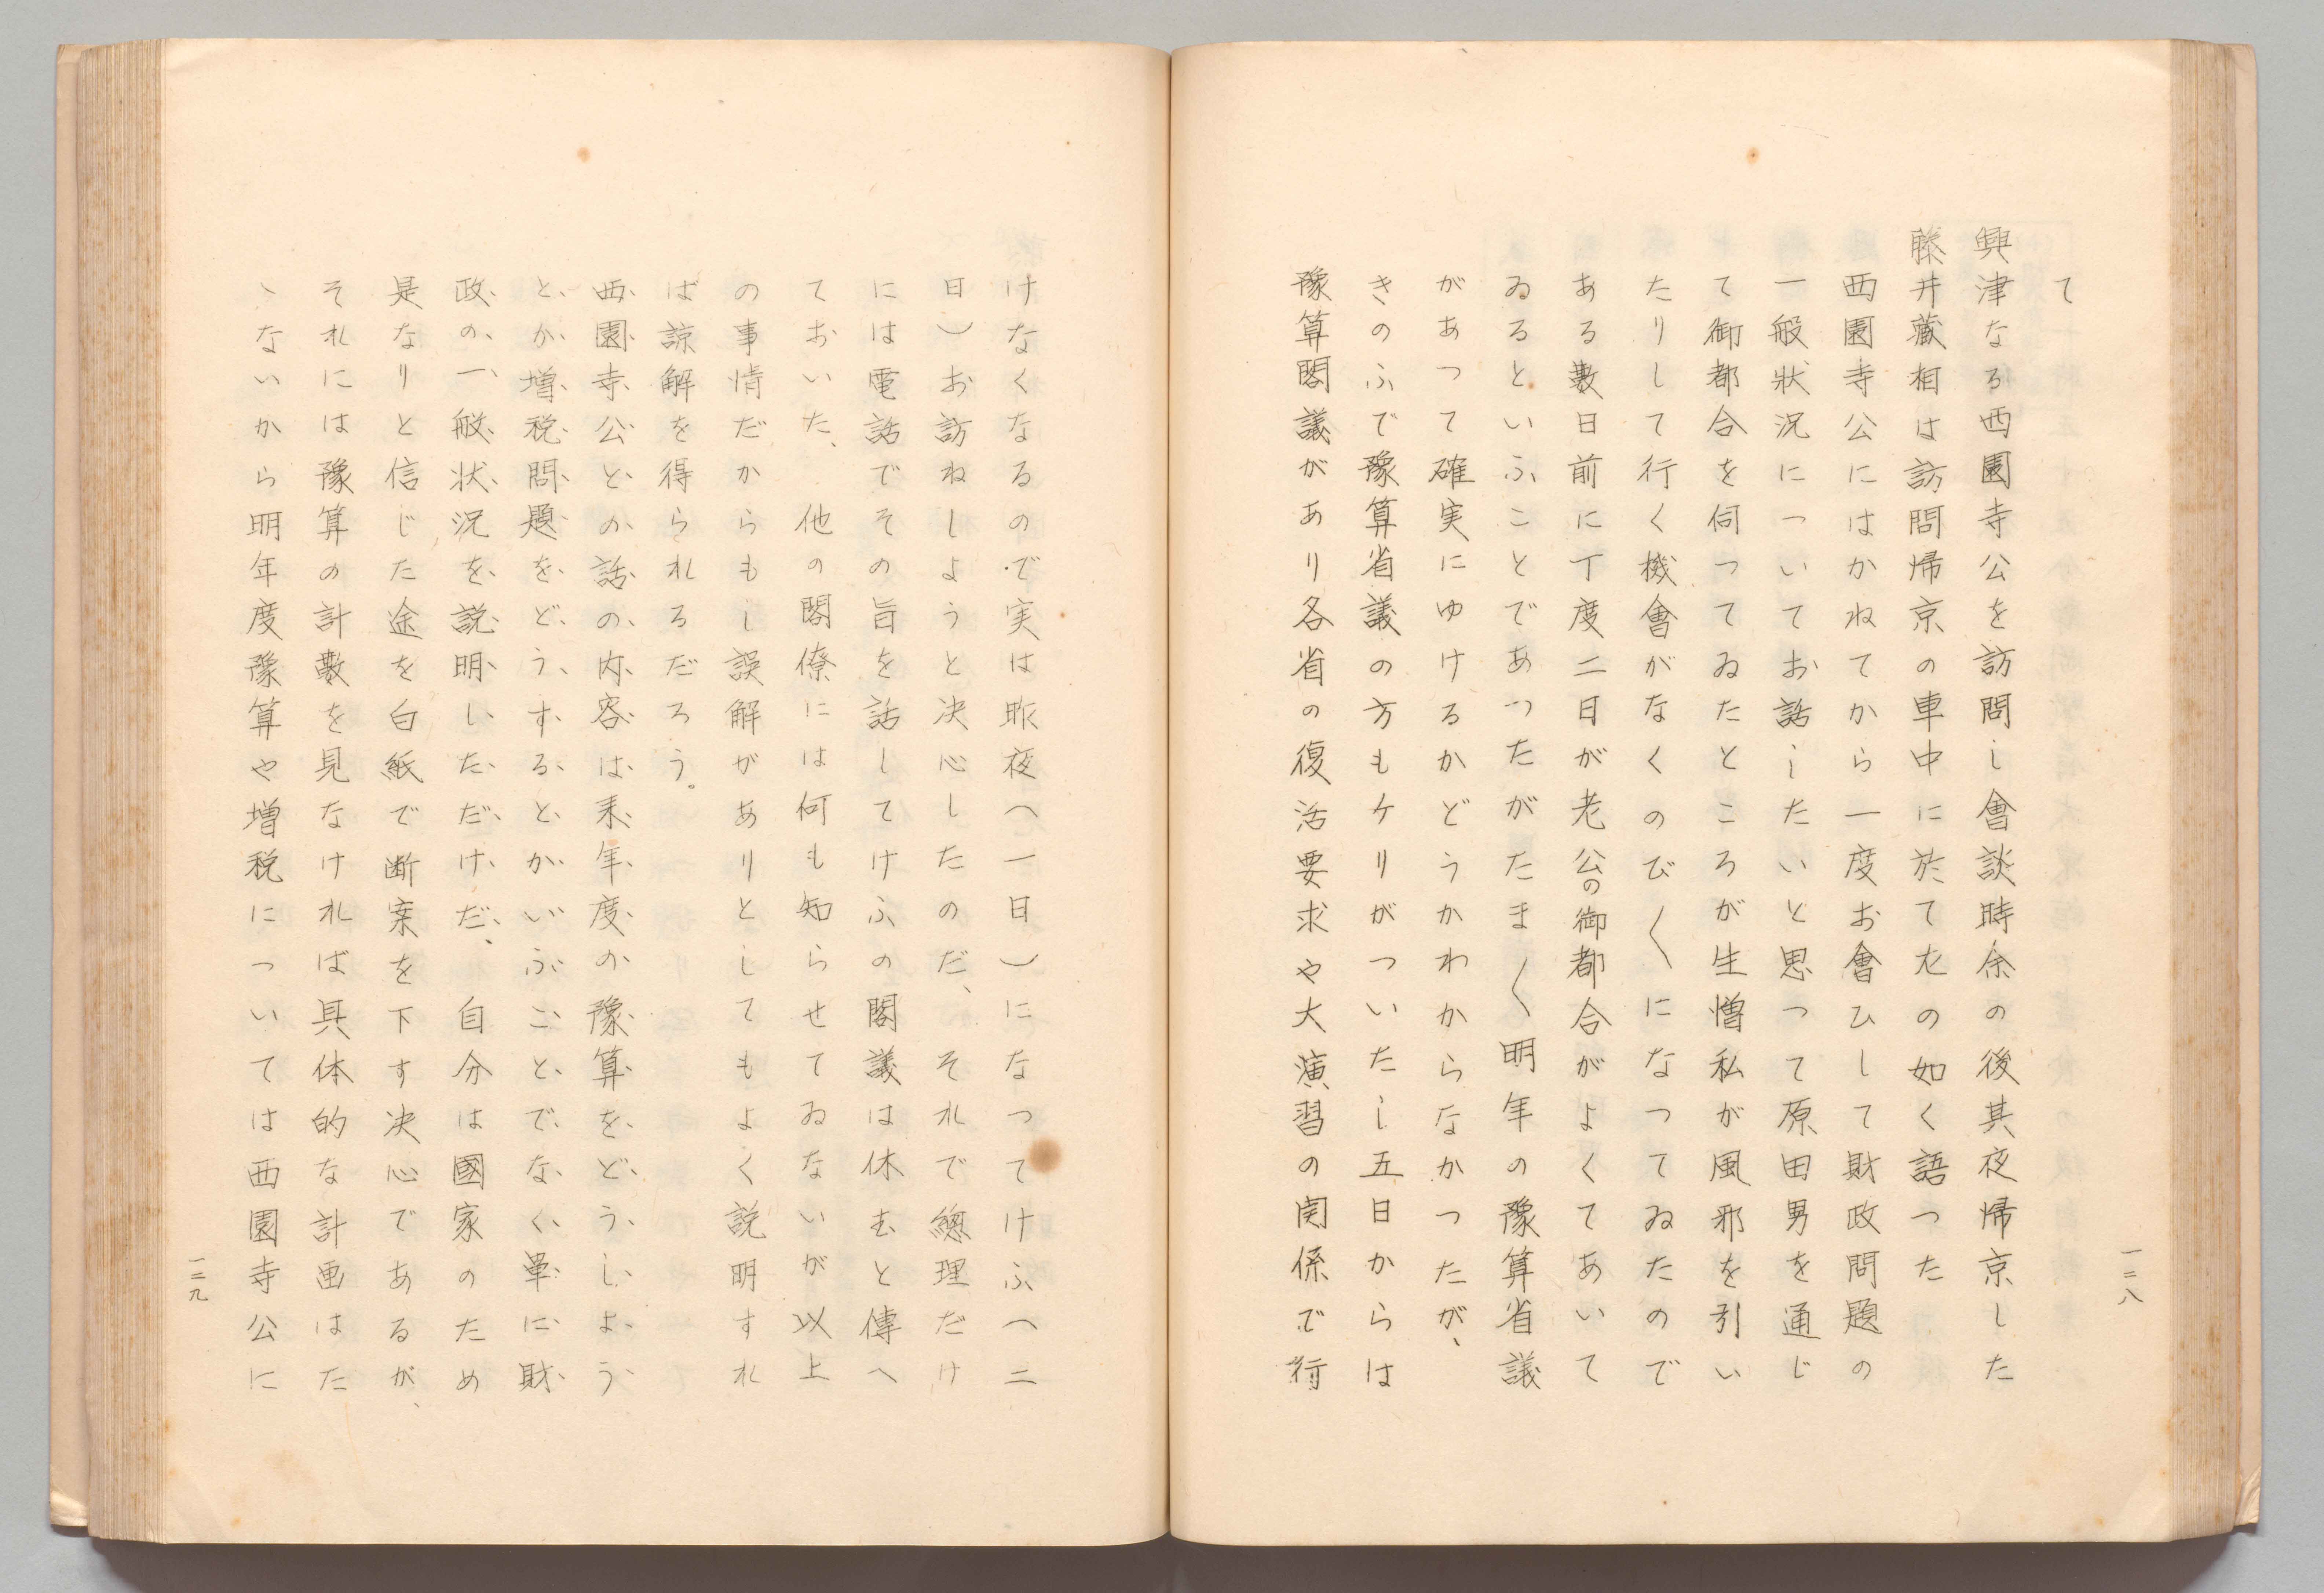 て
興津なる西園寺公を訪問し會談時余の後其夜帰京した
藤井蔵相は訪問帰京の車中に於て左の如く語つた
西園寺公にはかねてから一度お會ひして財政問題の
一般狀況についてお話したいと思つて原田男を通じ
て御都合を伺つてゐたところが生憎私が風邪を引い
たりして行く機會がなくのび〱になつてゐたので
ある數日前に丁度二日が老公の御都合がよくてあいて
ゐるといふことであつたがたま〱明年の豫算省議
があつて確実にゆけるかどうかわからなかつたが、
きのふで豫算省議の方もケリがついたし五日からは
豫算閣議があり各省の復活要求や大演習の関係で行
一二八
けなくなるので実は昨夜（一日）になつてけふ（二
日）お訪ねしようと决心したのだ、それで總理だけ
には電話でその旨を話してけふの閣議は休むと傳へ
ておいた、他の閣僚には何も知らせてゐないが以上
の事情だからもし誤解がありとしてもよく説明すれ
ば諒解を得られるだろう。
西園寺公との話の内容は来年度の豫算をどうしよう
とか増税問題をどうするとかいふことでなく單に財
政の一般状況を説明しただけだ、自分は國家のため
是なりと信じた途を白紙で断案を下す决心であるが、
それには豫算の計數を見なければ具体的な計画はた
ゝないから明年度豫算や増税については西園寺公に
一二九